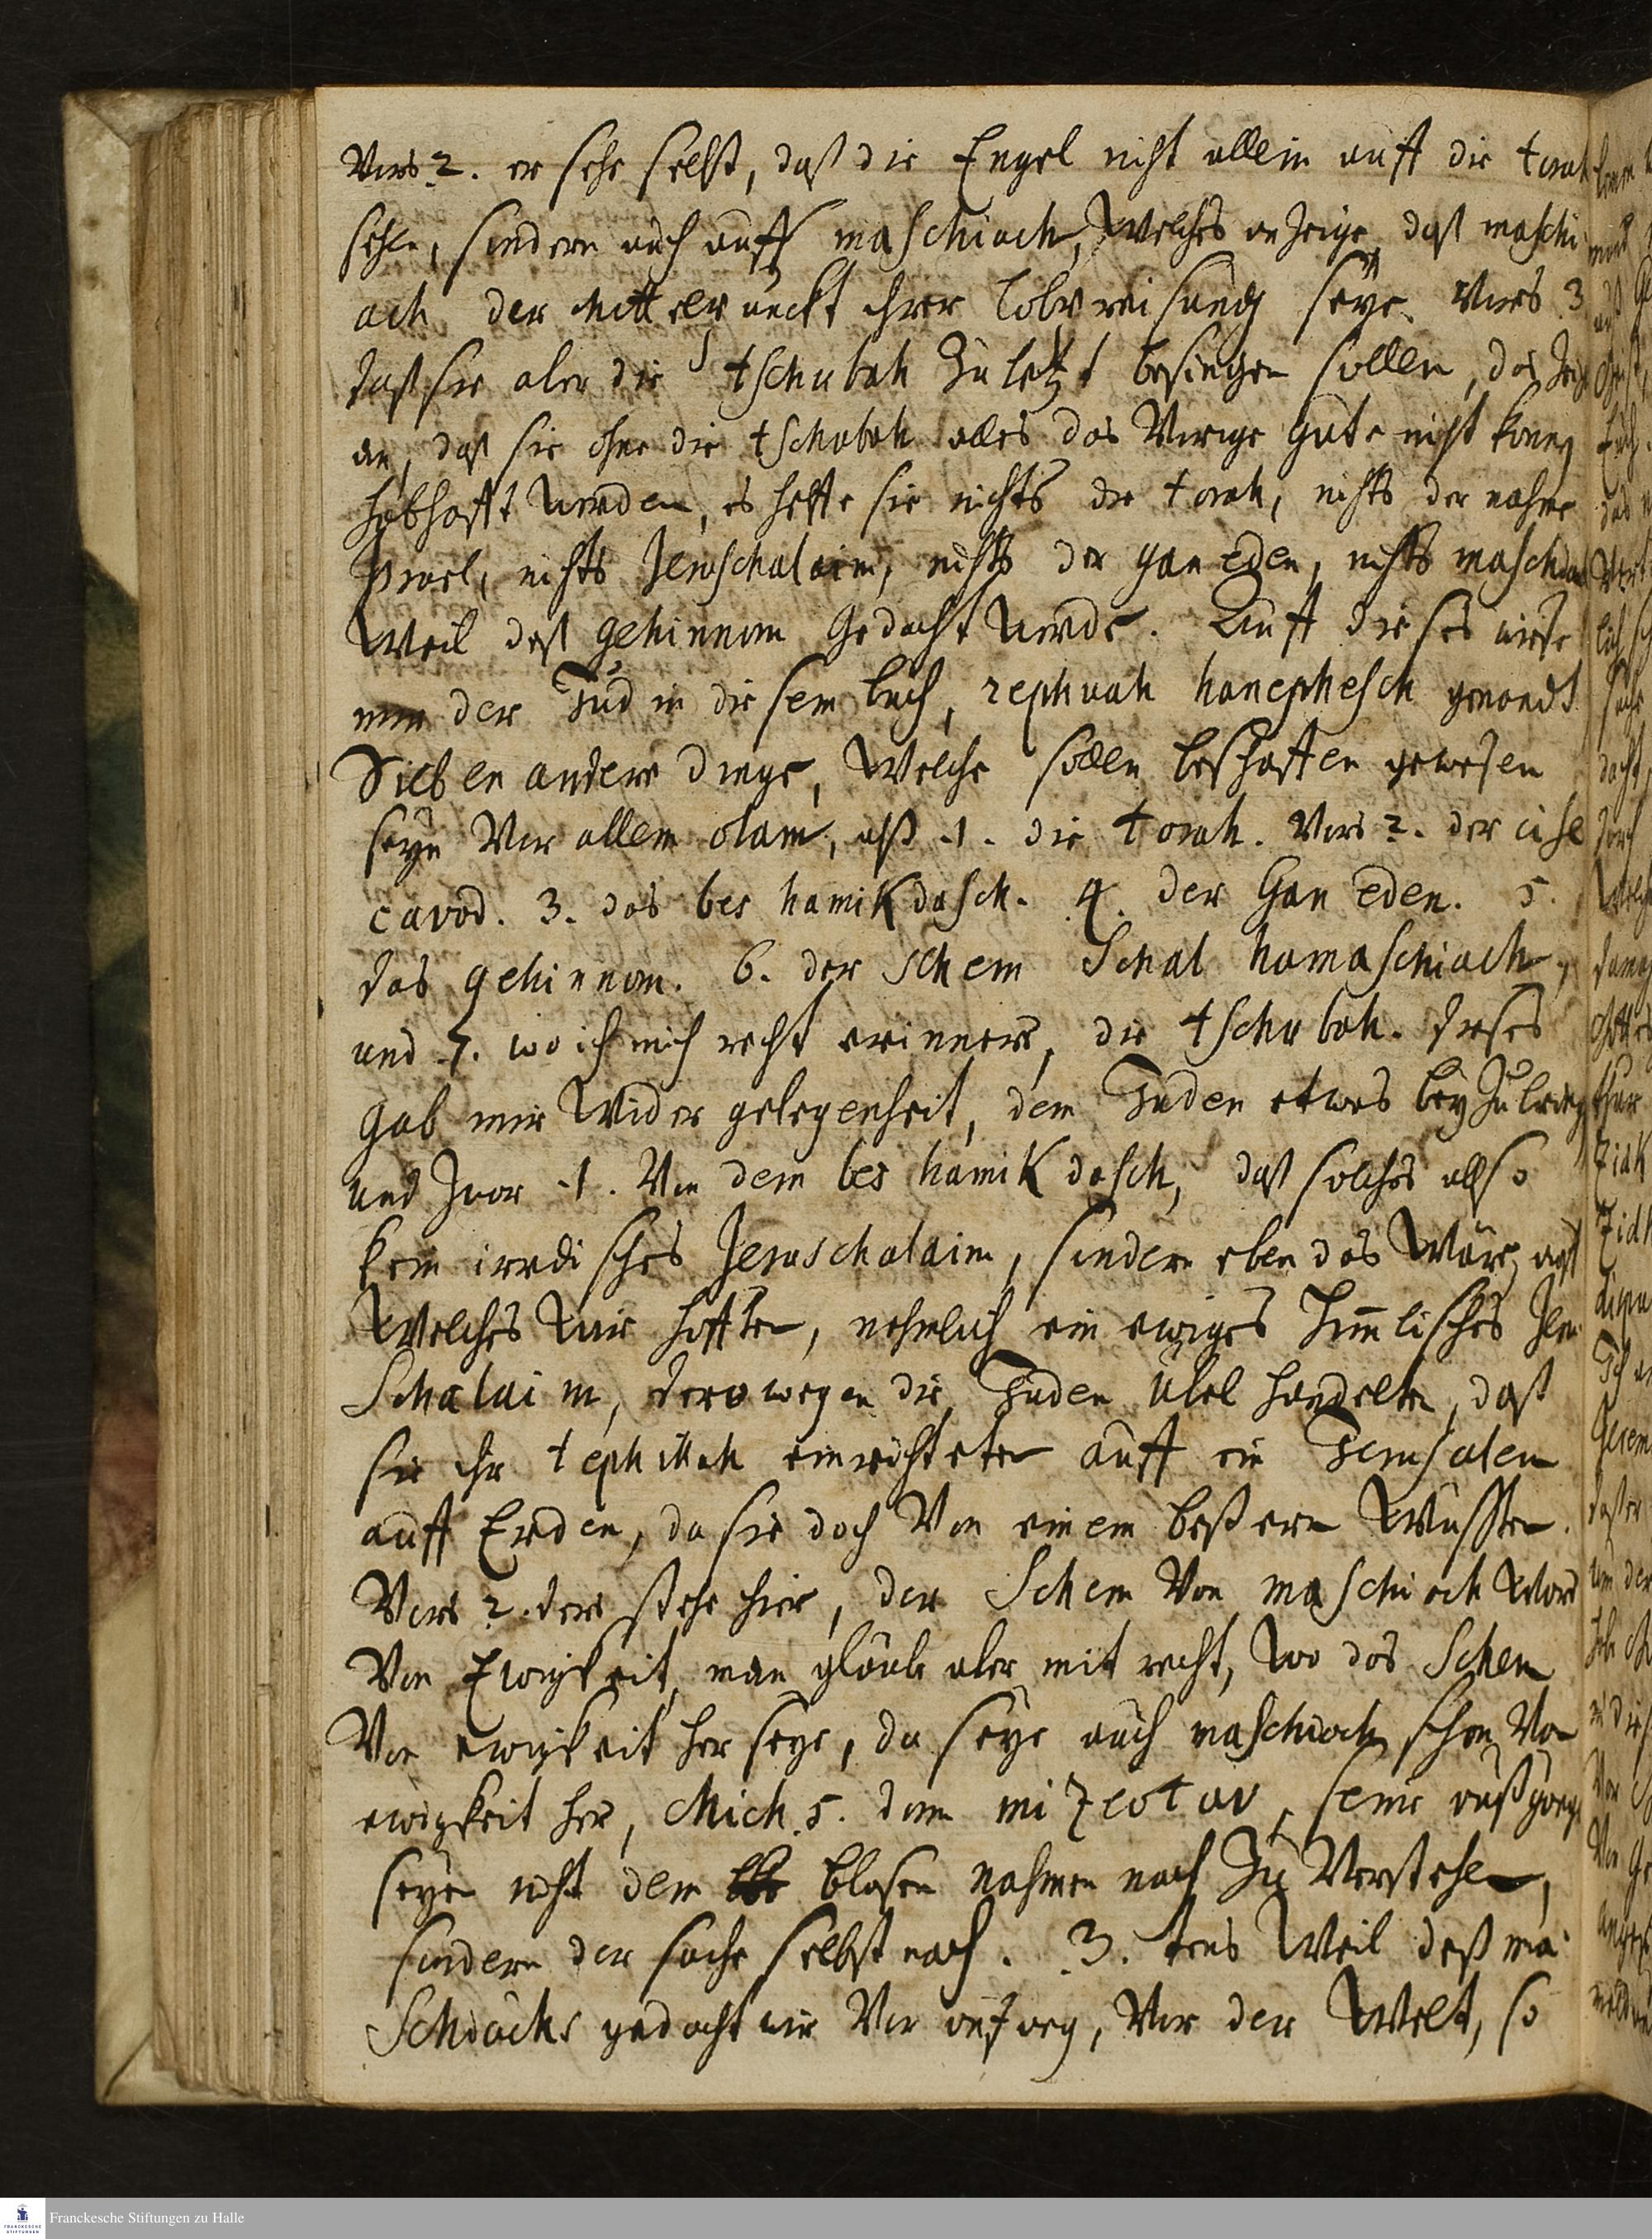 Vors 2. er sehe selbst, daß die Engel nicht allein auff die torah
sehen, sondern auch auff maschiach, Welches anzeige, daß maschi
ach der Mittelpunckt ihrer lobpreisung seye. Vors 3
daß sie aber die tschubah zuletzt besingen sollen, das zeige
an, daß sie ohne die tschubah alles das Vorige gute nicht könne
habhafft werden, es helffe sie nichts die torah, nichts der nahme
Jsrael, nichts Jeruschalaim, nichts der gan eden, nichts maschiach
Weil deß gehinnom gedacht werde. Auff dieses wiese
mir der Jud in diesem buch, rephuah hanephesch genandt
Sieben andere dinge, Welche sollen beschaffen gewesen
seyn Vor allem olam, alß 1. die torah. Vors 2. der cise
cavod. 3. das bes hamikdasch. 4. der Gan eden. 5.
das gehinnom. 6. der schem Schal hamaschiach,
und 7. wo ich mich recht erinnere, die tschubah. dieses
gab mir Wider gelegenheit, dem Juden etwas beyzubringen
und zwar 1. Von dem bes hamikdasch, daß solches also
kein irrdisches Jeruschalaim, sondern eben das Wäre, auf
Welches Wir hofften, nehmlich ein ewiges Himlisches Jeru
Schalaim, derowegen die Juden übel handelten, daß
sie ihr tephillah einrichteten auff ein Jerusalem
auff Erden, da sie doch Von einem beßern Wusten.
Vors 2. stehe hier, der Schem Von maschiach Wäre
Von Ewigkeit, man glaube aber mit recht, Wo das Schem
Von ewigkeit her seye, da seye auch maschiach schon Von
ewigkeit her, Mich. 5. dann mozeotav, seine außgänge
seyen nicht dem blosen nahmen nach zu Verstehen,
sondern der sache selbst nach. 3. tens Weil deß ma
Schiachs gedacht wir Vor anfang, Vor der Welt, so
Franckesche Stiftungen zu Halle